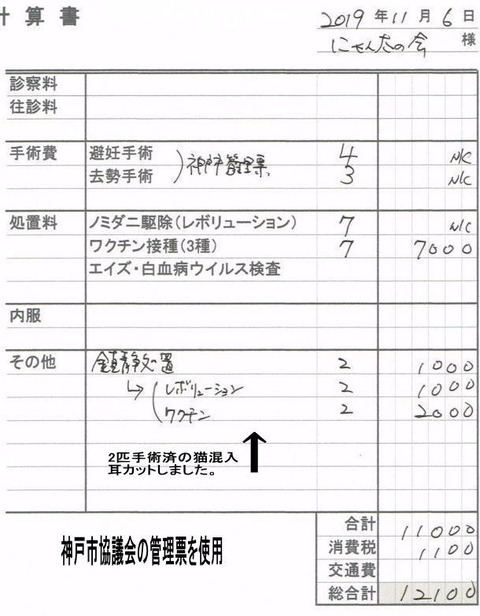 計算書
2019年11月6日
にゃんたの会 様
診察料
往診料
手術費 避妊手術 4 N/C
去勢手術 3 N/C
神戸管理票
処置料 ノミダニ駆除(レボリューション) 7 N/C
ワクチン接種(3種) 7 7000
エイズ・白血病ウイルス検査
内服
その他 鎮静処置 2 1000
レボリューション 2 1000
ワクチン 2 2000
2匹手術済の猫混入
耳カットしました。
神戸市協議会の管理票を使用
合計 11000
消費税 1100
交通費
総合計 12100